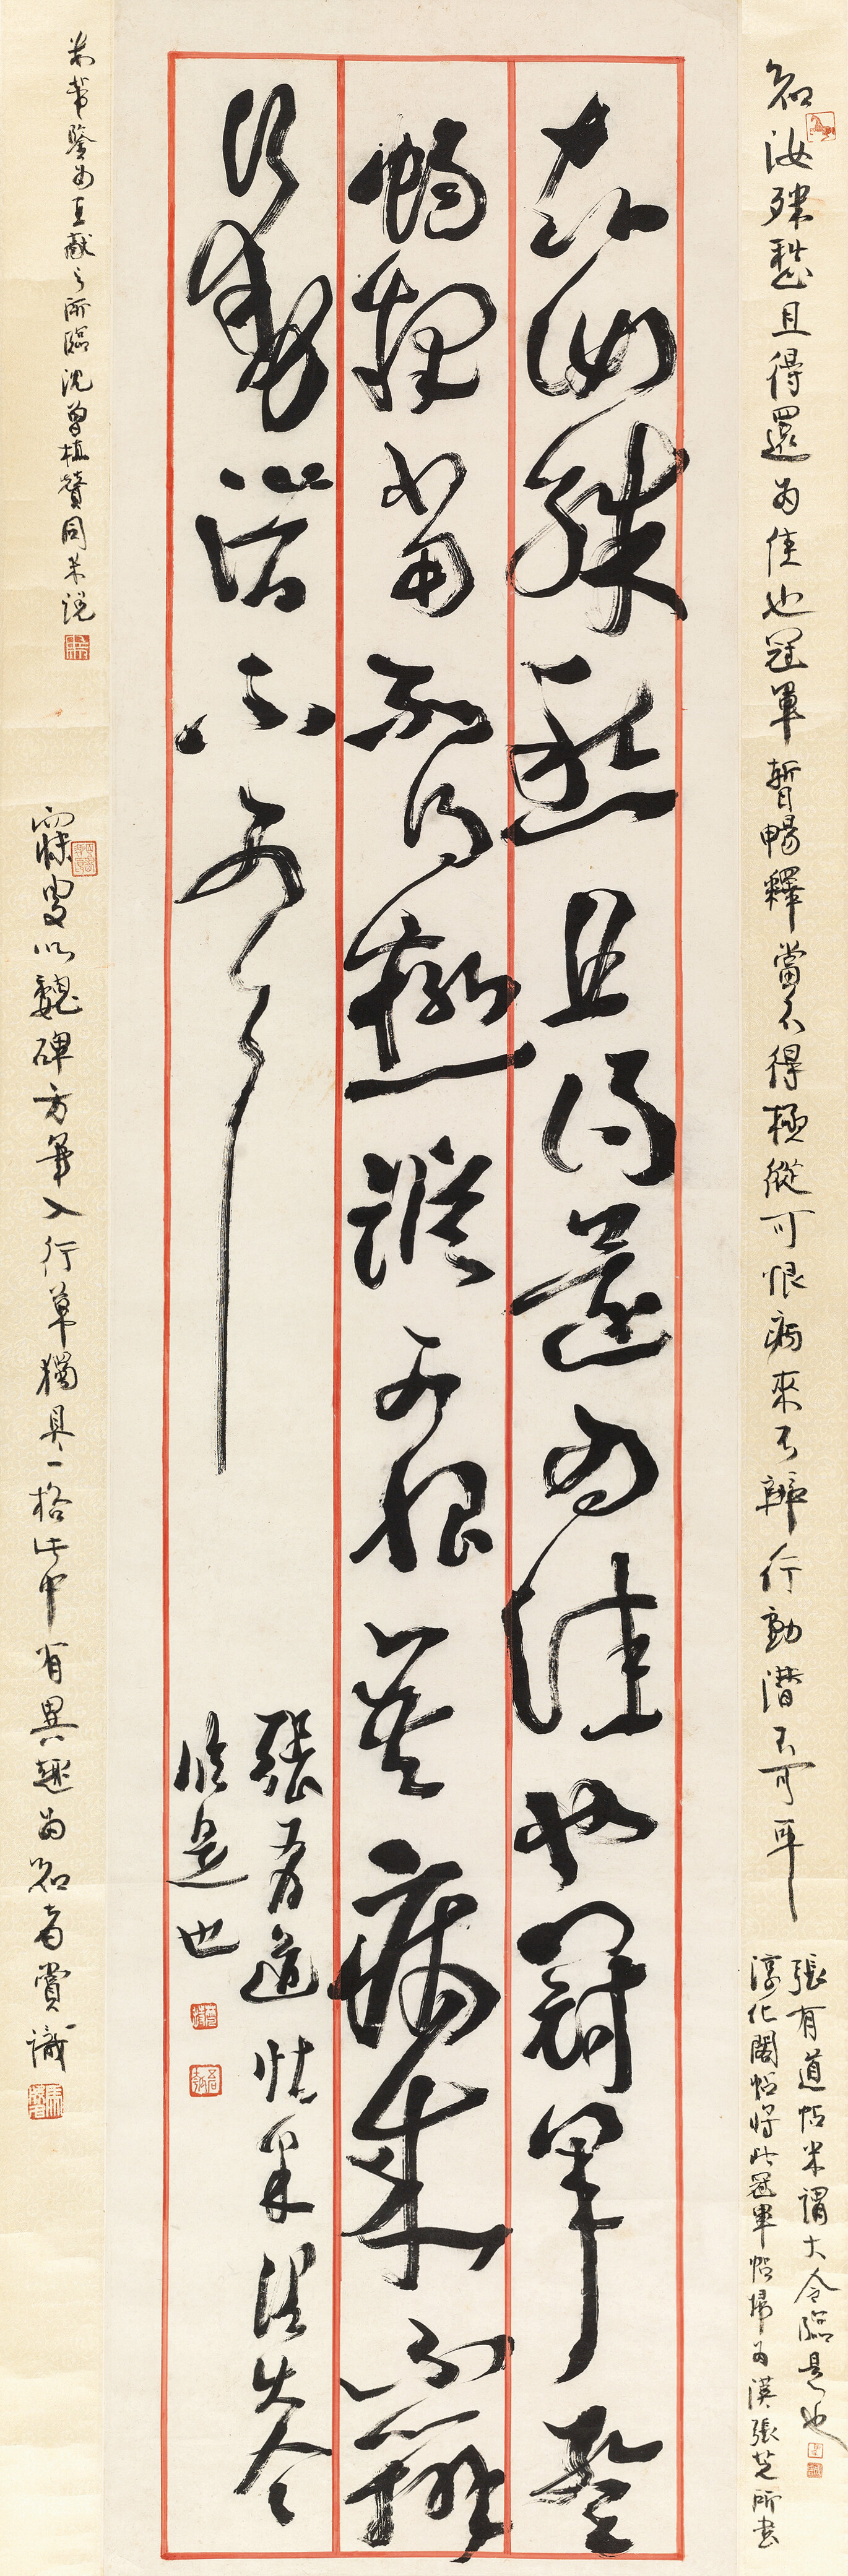 知汝殊愁且得還為佳也冠軍暫暢釋當不得極縱可恨病來不辨行動潛不可耳
張有道帖米謂大令臨是也
淳化閣帖將此冠軍帖歸為漢張芝所書
知汝殊愁且得還為佳也冠軍暫
暢釋當不得極縱可恨吾病來不辦
行動潛不可耳
張有道帖米謂大令
臨是也
米芾鑒為王獻之所臨沈曾植贊同米說
寐叟以魏碑方筆入行草獨具一格此中有異趣為知者賞識